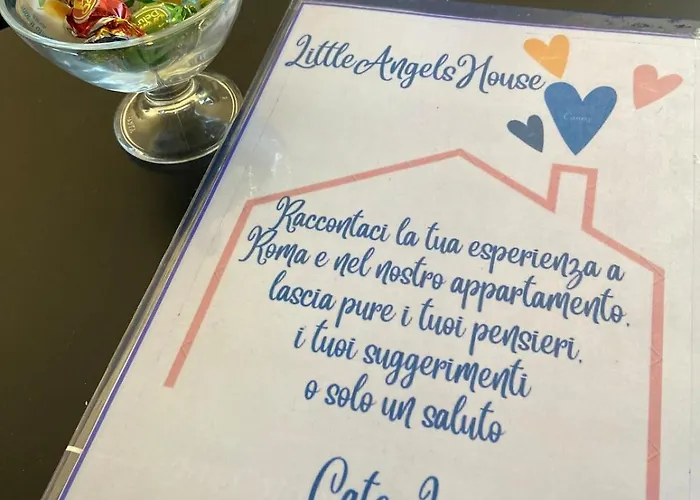 Little Angels House
Raccontaci la tua esperienza a
Roma e nel nostro appartamento,
lascia pure i tuoi pensieri,
i tuoi suggerimenti
o solo un saluto